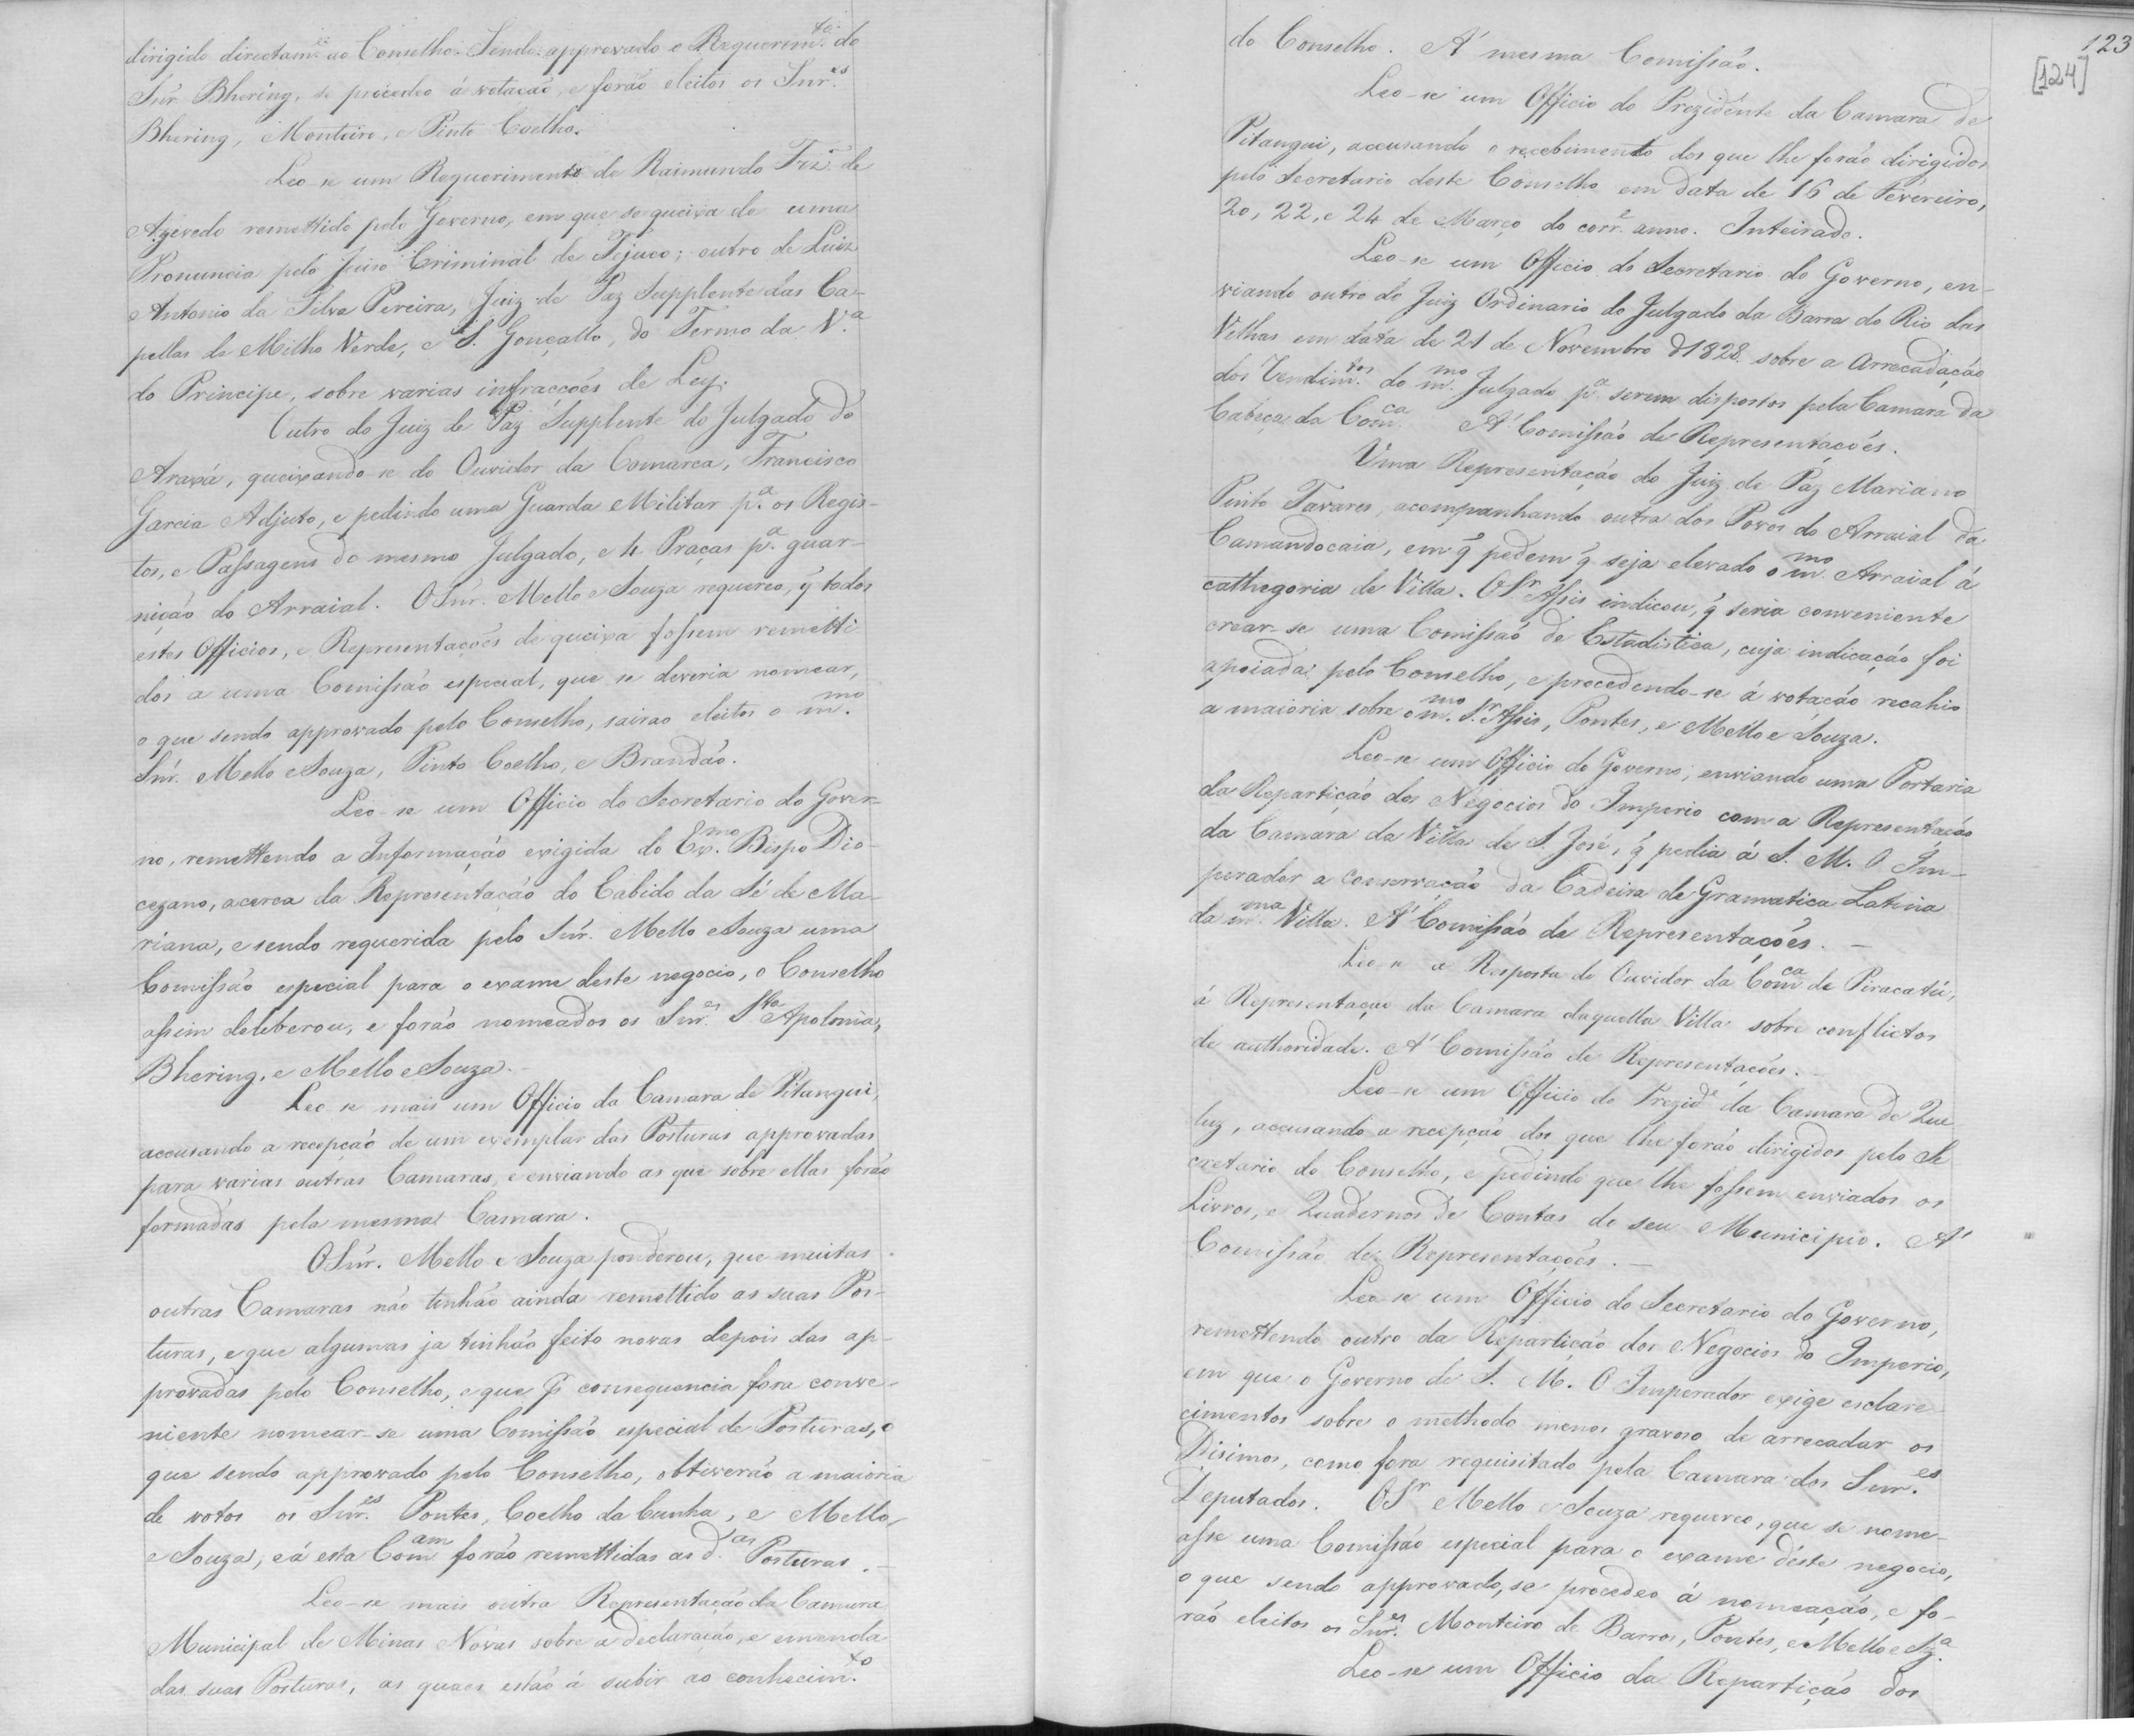 dirigido directam.e ao Conselho. Sendo approvado o Requerim.to do
Snr. Bhering, se procedeo á votação, e forão eleitos os Snr.es
Bhering, Monteiro, e Pinto Coelho.
Leo-se um Requerimento de Raimundo Frz. de
Azevedo remettido pelo Governo, em que se queixa de uma
Pronuncia pelo Juiso Criminal de Tejuco; outro de Luiz
Antonio da Silva Pereira, Juiz de Paz Supplente das Ca-
pellas de Milho Verde, e S. Gonçallo, do Termo da V.a
do Principe, sobre varias infracções de Ley.
Outro do Juiz de Paz Supplente do Julgado do
Araxá, queixando-se do Ouvidor da Comarca, Francisco
Garcia Adjuto, e pedindo uma Guarda Militar p.a os Regis-
tos, e Passagens do mesmo Julgado, e 4 Praças p.a guar-
nição do Arraial. O Snr. Mello e Souza requereo, q̃ todos
estes Officios, e Representações de queixa fossem remetti
dos a uma Comissão especial, que se deveria nomear,
o que sendo approvado pelo Conselho, sairao eleitos o m.mo
Snr. Mello e Souza, Pinto Coelho, e Brandão.
Leo-se um Officio do Secretario do Gover-
no, remettendo a Informação exigida do Ex.mo Bispo Dio-
cezano, acerca da Representação do Cabido da Sé de Ma-
riana, e sendo requerida pelo Snr. Mello e Souza uma
Comissão especial para o exame deste negocio, o Conselho
assim deleberou, e forão nomeados os Snr.es S.ta Apolonia,
Bhering, e Mello e Souza.
Leo-se mais um Officio da Camara de Pitangui,
accusando a recepção de um exemplar das Posturas approvadas
para varias outras Camaras, e enviando as que sobre ellas forão
formadas pela mesma Camara.
O Snr. Mello e Souza ponderou, que muitas
outras Camaras não tinhão ainda remettido as suas Pos-
turas, e que algumas ja tinhão feito novas depois das ap-
provadas pelo Conselho, e que p consequencia fora conve-
niente nomear-se uma Comissão especial de Posturas, o
que sendo approvado pelo Conselho, obtiverão a maioria
de votos os Snr.es Pontes, Coelho da Cunha, e Mello
e Souza, e á esta Com.am forão remettidas as d.as Posturas.
Leo-se mais outra Representação da Camara
Municipal de Minas Novas sobre a declaração, e emenda
das suas Posturas, as quaes estão á subir ao conhecim.to
123
[124]
do Conselho. Á mesma Comissão.
Leo-se um Officio do Prezidente da Camara de
Pitangui, accusando o recebimento dos que lhe forão dirigidos
pelo Secretario deste Conselho em data de 16 de Fevereiro,
20, 22, e 24 de Março do corr.e anno. Inteirado.
Leo-se um Officio do Secretario do Governo, en-
viando outro do Juiz Ordinario do Julgado da Barra do Rio das
Velhas em data de 21 de Novembro d 1828 sobre a Arrecadação
dos Rendim.tos do m.mo Julgado p.a serem dispostos pela Camara da
Cabeça da Com.ca Á Comissão de Representações.
Uma Representação do Juiz de Paz Mariano
Pinto Tavares, acompanhando outra dos Povos do Arraial da
Camandocaia, em q̃ pedem q̃ seja elevado o m.mo Arraial á
cathegoria de Villa. O Sr Assis indicou, q̃ seria conveniente
crear-se uma Comissão de Estadistica, cuja indicação foi
apoiada pelo Conselho, e procedendo-se á votação recahio
a maioria sobre o m.mo Sr. Assis, Pontes, e Mello e Souza.
Leo-se um Officio do Governo, enviando uma Portaria
da Repartição dos Negocios do Imperio com a Representação
da Camara da Villa de S. José, q̃ pedia á S. M. O Im-
perador a conservação da Cadeira de Gramatica Latina
da m.ma Villa. Á Comissão de Representações.
Leo-se a Resposta do Ouvidor da Com.ca de Piracatú,
á Representaçao da Camara daquella Villa sobre conflictos
de authoridade. Á Comissão de Representações.
Leo-se um Officio do Prezid.e da Camara de Que
luz, accusando a recepção dos que lhe forão dirigidos pelo Se
cretario do Conselho, e pedindo que lhe fossem enviados os
Livros, e Quadernos de Contas do seu Municipio. Á
Comissão de Representações.
Leo-se um Officio do Secretario do Governo,
remettendo outro da Repartição dos Negocios do Imperio,
em que o Governo de S. M. O Imperador exige esclare
cimentos sobre o methodo menos gravoso de arrecadar os
Disimos, como fora requisitado pela Camara dos Snr.es
Deputados. O Sr Mello e Souza requereo, que se nome-
asse uma Comissão especial para o exame déste negocio,
o que sendo approvado, se procedeo á nomeação, e fo-
rão eleitos os Snr.es Monteiro de Barros, Pontes, e Mello e Sz.a
Leo-se um Officio da Repartição dos